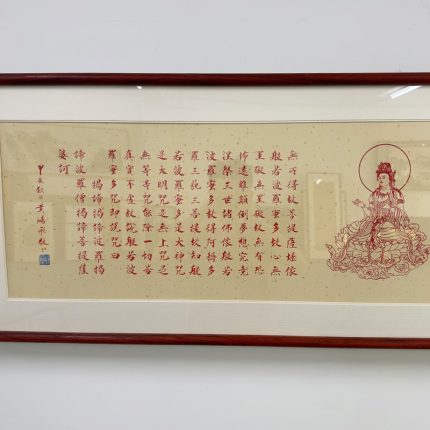 無所得故菩提薩埵依
般若波羅蜜多故心無
罣礙無罣礙故無有恐
怖遠離顛倒夢想究竟
涅槃三世諸佛依般若
波羅蜜多故得阿耨多
羅三藐三菩提故知般
若波羅蜜多是大神咒
是大明咒是無上咒是
無等等咒能除一切苦
真實不虛故說般若波
羅蜜多咒即說咒曰
揭諦揭諦波羅揭
諦波羅僧揭諦菩提薩
婆訶
甲辰秋